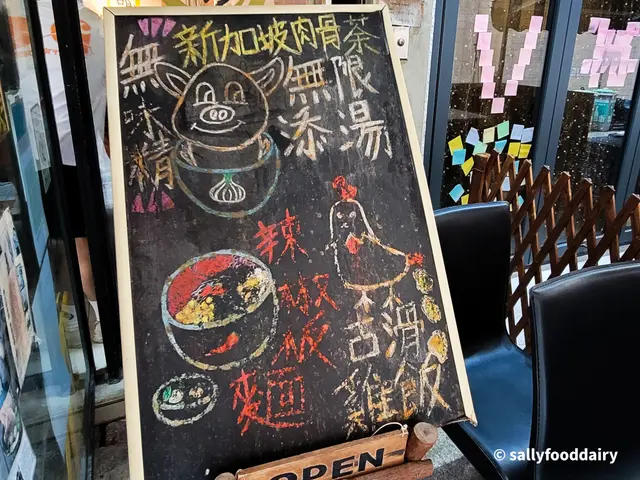 新加坡肉骨茶
無味精
無限
添湯
辣椒板麵
古滑
雞飯
OPEN
© sallyfooddairy